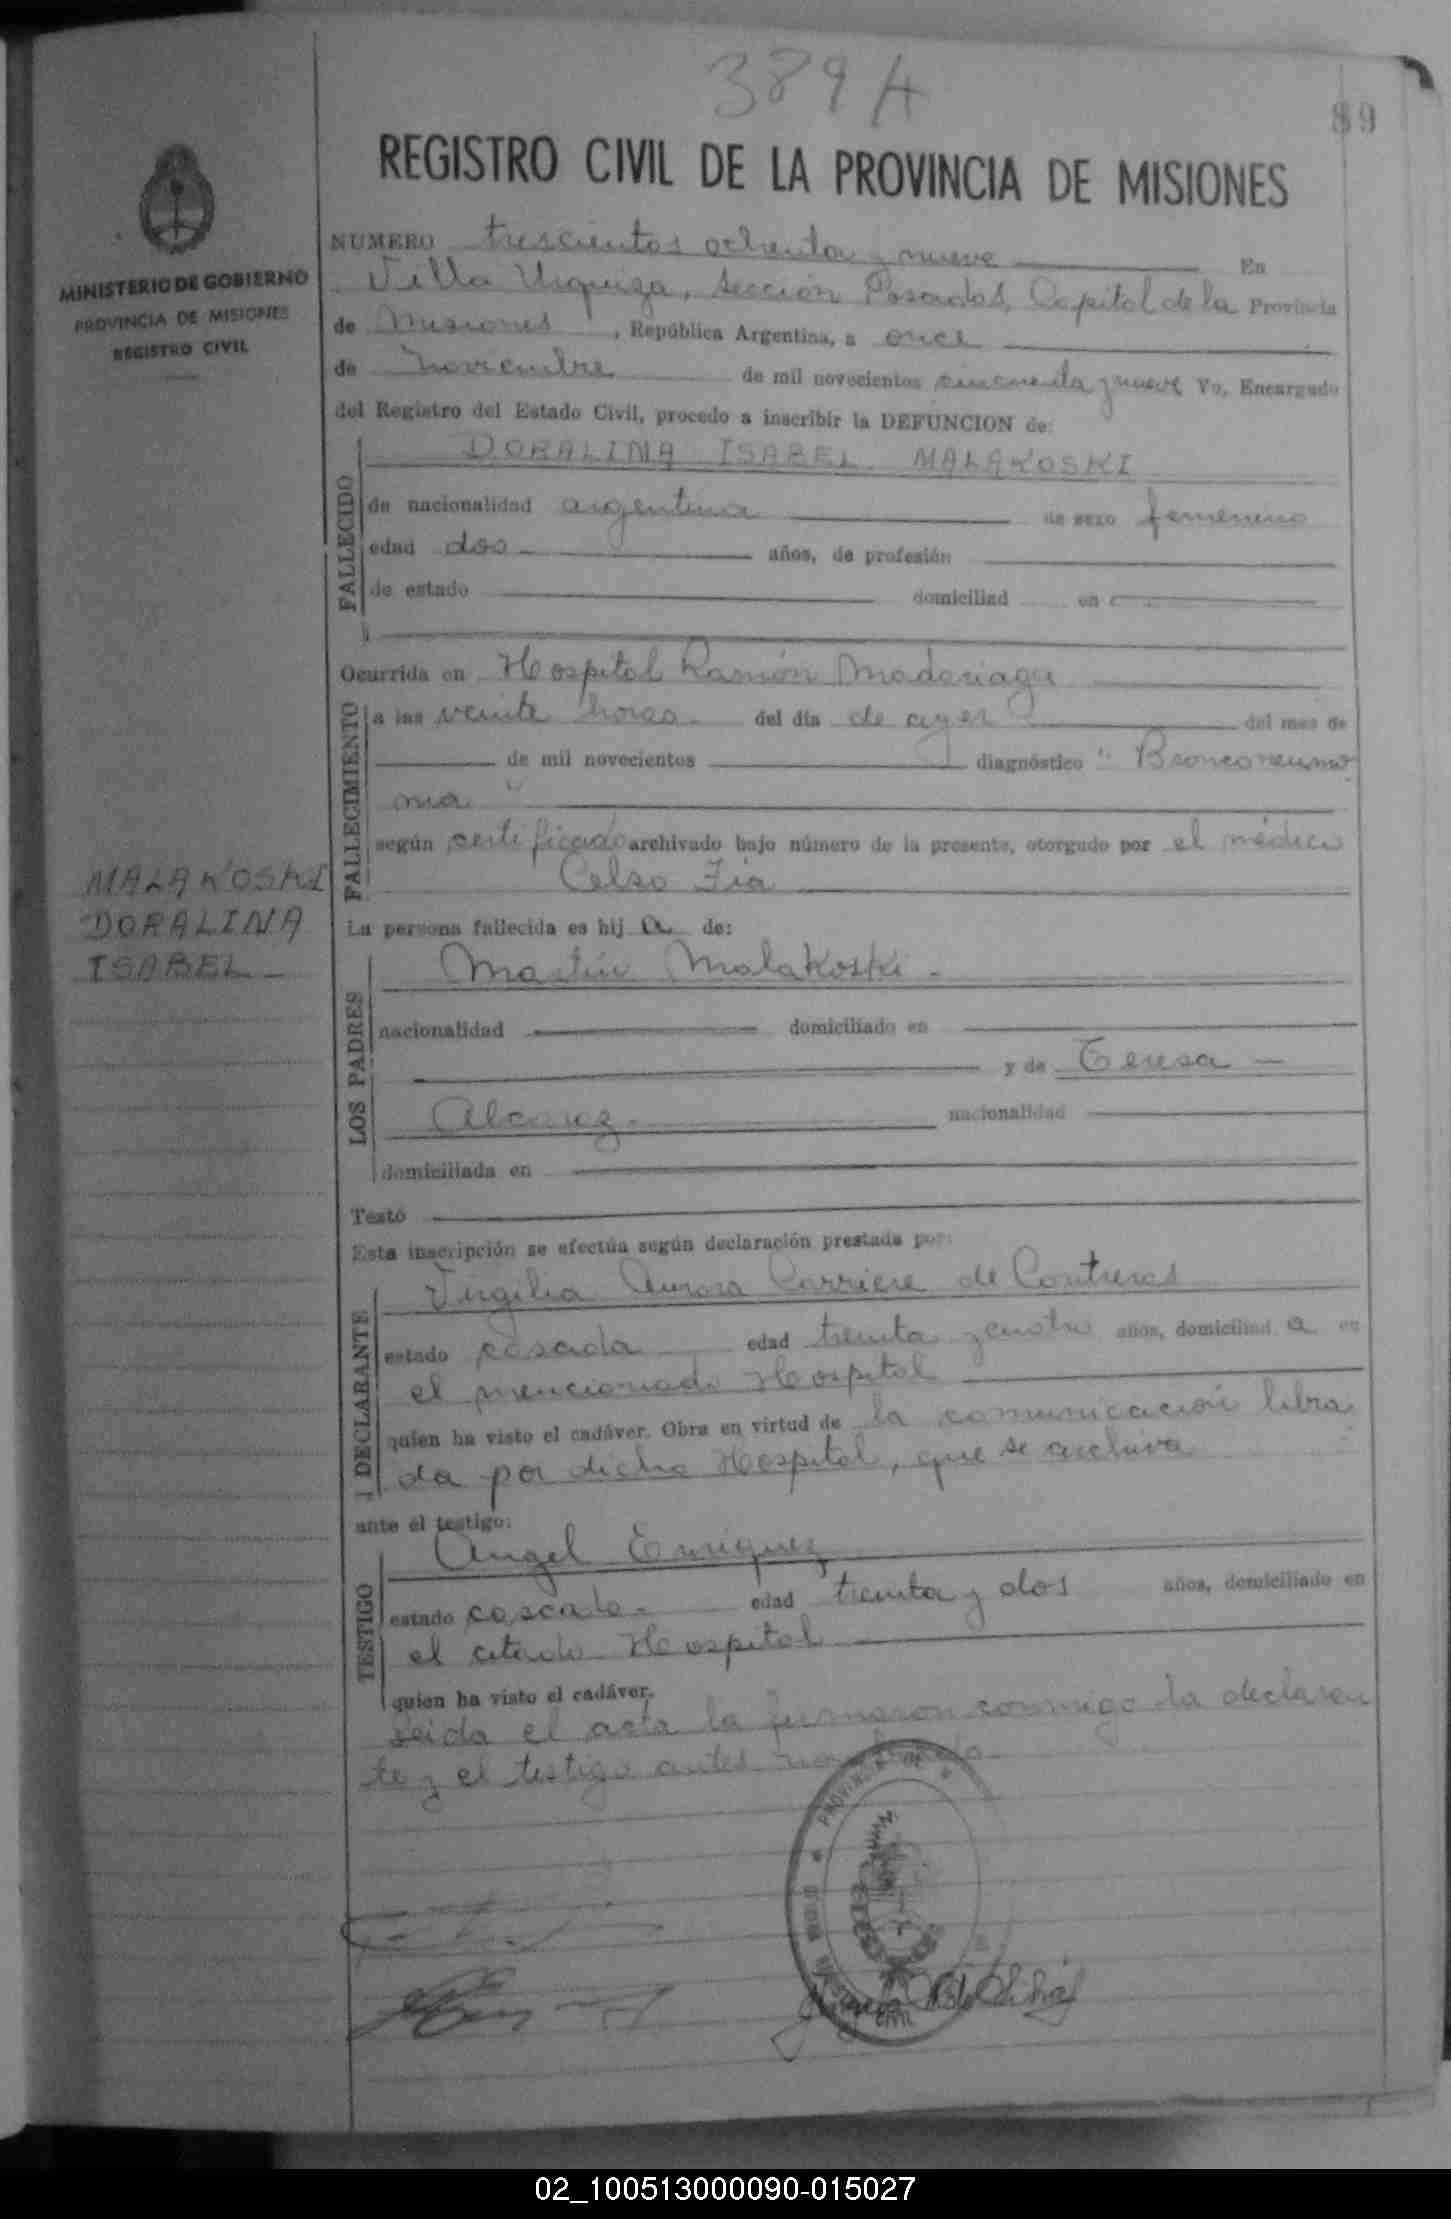 389 A
89
REGISTRO CIVIL DE LA PROVINCIA DE MISIONES
MINISTERIO DE GOBIERNO
PROVINCIA DE MISIONES
REGISTRO CIVIL
NUMERO trescientos ochenta y nueve En
Villa Urquiza, sección Posadas, Capital de la Provincia
de Misiones, República Argentina, a once
de noviembre de mil novecientos cincuenta y nueve Yo, Encargado
del Registro del Estado Civil, procedo a inscribir la DEFUNCION de:
DORALINA ISABEL MALAKOSKI
FALLECIDO
de nacionalidad argentina de sexo femenino
edad dos años, de profesión
de estado domiciliad en
Ocurrida en Hospital Ramón Madariaga
FALLECIMIENTO
a las veinte horas del día de ayer del mes de
de mil novecientos diagnóstico "Bronconeumo
nia"
según certificado archivado bajo número de la presente, otorgado por el médico
Celso Fia
MALAKOSKI
DORALINA
ISABEL
La persona fallecida es hij a de:
LOS PADRES
Martín Malakoski
nacionalidad domiciliado en
y de Teresa
Alcaraz
nacionalidad
domiciliada en
Testó
Esta inscripción se efectúa según declaración prestada por:
DECLARANTE
Virgilia Aurora Carriere de Contreras
estado casada edad treinta y cuatro años, domiciliad a en
el mencionado Hospital
quien ha visto el cadáver. Obra en virtud de la comunicación libra
da por dicho Hospital, que se archiva
ante el testigo:
TESTIGO
Angel Enriquez
estado casado edad treinta y dos años, domiciliado en
el citado Hospital
quien ha visto el cadáver.
Leida el acta la firmaron conmigo la declaran
te y el testigo antes
PROVINCIA DE M
CIVIL
02_100513000090-015027